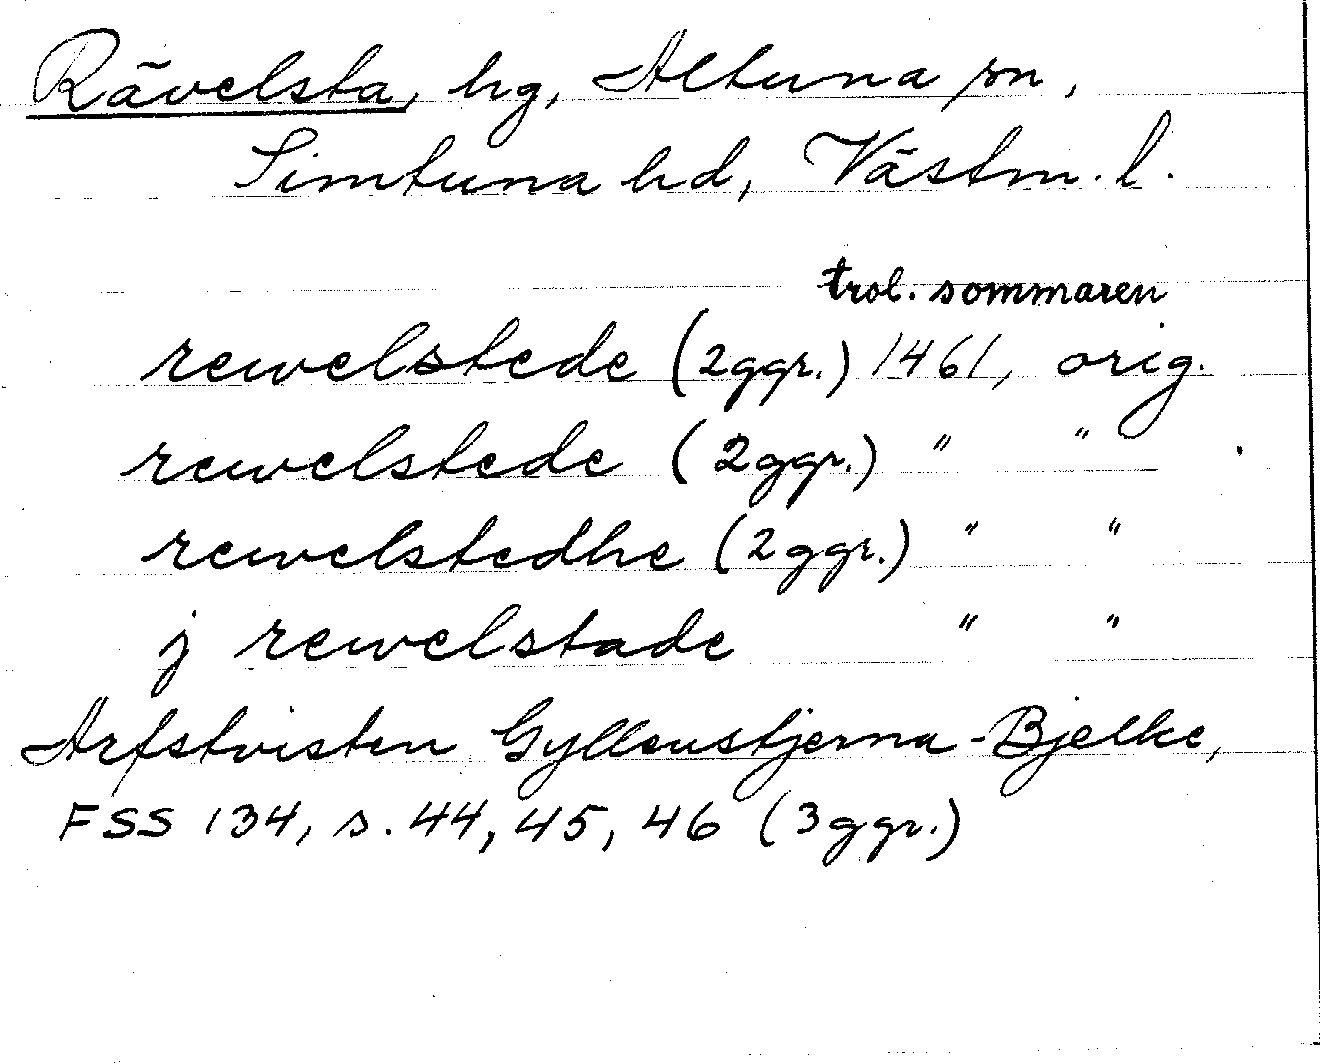 Rävelsta, hg, Altuna sn,
Simtuna hd, Västm. l.
trol. sommaren
rewelstede (2ggr.) 1461, orig.
rewelstede (2ggr.) " "
rewelstedhe (2ggr.) " "
j rewelstade " "
Arfstvisten Gyllenstjerna-Bjelke,
FSS 134, s. 44, 45, 46 (3ggr.)